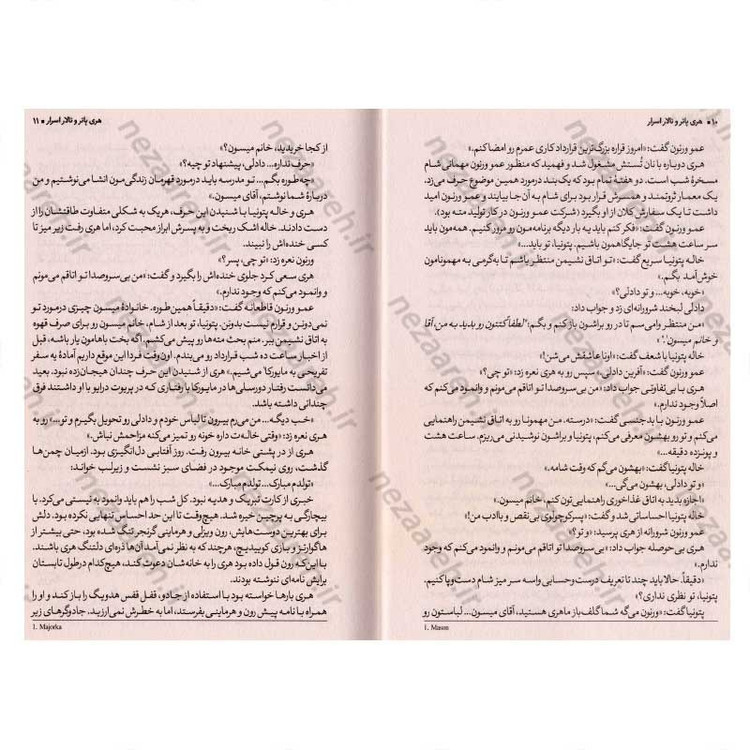 ۱۰ ■ هری پاتر و تالار اسرار
عمو ورنون گفت: «امروز قراره بزرگ‌ترین قرارداد کاری عمرم رو امضا کنم.»
هری دوباره با نان تُستش مشغول شد و فهمید که منظور عمو ورنون مهمانی شام
مسخرهٔ شب است. دو هفتهٔ تمام بود که یک بند درمورد همین موضوع حرف می‌زد.
یک معمار ثروتمند و همسرش قرار بود برای شام به آن‌جا بیایند و عمو ورنون امید
داشت تا یک سفارش کلان از او بگیرد (شرکت عمو ورنون در کار تولید مته بود).
عمو ورنون گفت: «فکر کنم باید یه بار دیگه برنامه‌مون رو مرور کنیم. همه‌مون باید
سر ساعت هشت تو جایگاهمون باشیم. پتونیا، تو باید...»
خاله پتونیا سریع گفت: «تو اتاق نشیمن منتظر باشم تا به‌گرمی به مهمونامون
خوش‌آمد بگم.»
«خوبه، خوبه... و تو دادلی؟»
دادلی لبخند شرورانه‌ای زد و جواب داد:
«من منتظر وامی‌سم تا در رو براشون باز کنم و بگم: "لطفاً کتتون رو بدید به من، آقا
و خانم میسون¹."»
خاله پتونیا با شعف گفت: «اونا عاشقش می‌شن!»
عمو ورنون گفت: «آفرین دادلی.» سپس رو به هری نعره زد: «تو چی؟»
هری با بی‌تفاوتی جواب داد: «من بی‌سروصدا تو اتاقم می‌مونم و وانمود می‌کنم که
اصلاً وجود ندارم.»
عمو ورنون با بدجنسی گفت: «درسته. من مهمونا رو به اتاق نشیمن راهنمایی
می‌کنم و تو رو بهشون معرفی می‌کنم، پتونیا و براشون نوشیدنی می‌ریزم. ساعت هشت
و پونزده دقیقه...»
خاله پتونیا گفت: «بهشون می‌گم که وقت شامه.»
«و تو دادلی، بهشون می‌گی...»
«اجازه بدید به اتاق غذاخوری راهنمایی‌تون کنم، خانم میسون.»
خاله پتونیا احساساتی شد و گفت: «پسرکوچولوی بی‌نقص و باادب من!»
عمو ورنون شرورانه از هری پرسید: «و تو؟»
هری بی‌حوصله جواب داد: «بی‌سروصدا تو اتاقم می‌مونم و وانمود می‌کنم که وجود
ندارم.»
«دقیقاً. حالا باید چند تا تعریف درست‌وحسابی واسه سر میز شام دست‌وپا کنیم.
پتونیا، تو نظری نداری؟»
پتونیا گفت: «ورنون می‌گه شما گلف‌باز ماهری هستید، آقای میسون... لباستون رو
1. Mason
هری پاتر و تالار اسرار ■ ۱۱
از کجا خریدید، خانم میسون؟»
«حرف نداره... دادلی، پیشنهاد تو چیه؟»
«چه‌طوره بگم... تو مدرسه باید درمورد قهرمان زندگی‌مون انشا می‌نوشتیم و من
دربارهٔ شما نوشتم، آقای میسون.»
هری و خاله پتونیا با شنیدن این حرف، هریک به شکلی متفاوت طاقتشان را از
دست دادند. خاله اشک ریخت و به پسرش ابراز محبت کرد، اما هری رفت زیر میز تا
کسی خنده‌اش را نبیند.
ورنون نعره زد: «تو چی، پسر؟»
هری سعی کرد جلوی خنده‌اش را بگیرد و گفت: «من بی‌سروصدا تو اتاقم می‌مونم
و وانمود می‌کنم که وجود ندارم.»
عمو ورنون قاطعانه گفت: «دقیقاً همین‌طوره. خانوادهٔ میسون چیزی درمورد تو
نمی‌دونن و قرارم نیست بدونن. پتونیا، تو بعد از شام، خانم میسون رو برای صرف قهوه
به اتاق نشیمن ببر. منم بحث مته‌ها رو پیش می‌کشم. اگه بخت باهامون یار باشه، قبل
از اخبار ساعت ده شب قرارداد رو می‌بندم. اون وقت فردا این موقع داریم آمادهٔ یه سفر
تفریحی به مایورکا¹ می‌شیم.» هری از شنیدن این حرف چندان هیجان‌زده نبود. بعید
می‌دانست رفتار دورسلی‌ها در مایورکا با رفتاری که در پریوت درایو با او داشتند فرق
چندانی داشته باشد.
«خب دیگه... من می‌رم بیرون تا لباس خودم و دادلی رو تحویل بگیرم و تو...» رو به
هری نعره زد: «وقتی خاله‌ت داره خونه رو تمیز می‌کنه مزاحمش نباش.»
هری از در پشتی خانه بیرون رفت. روز آفتابی دل‌انگیزی بود. از میان چمن‌ها
گذشت، روی نیمکت موجود در فضای سبز نشست و زیرلب خواند:
«تولدم مبارک... تولدم مبارک...»
خبری از کارت تبریک و هدیه نبود. کل شب را هم باید وانمود به نیستی می‌کرد. با
بیچارگی به پرچین خیره شد. هیچ‌وقت تا این حد احساس تنهایی نکرده بود. دلش
برای بهترین دوست‌هایش، رون ویزلی و هرماینی گرنجر تنگ شده بود، حتی بیشتر از
هاگوارتز و بازی کوییدیچ، هرچند که به نظر نمی‌آمد آن‌ها ذره‌ای دلتنگ هری باشند.
با این‌که رون قول داده بود هری را به خانه‌شان دعوت کند، هیچ‌کدام درطول تابستان
برایش نامه‌ای ننوشته بودند.
هری بارها خواسته بود با استفاده از جادو، قفل قفس هدویگ را باز کند و او را
همراه با نامه پیش رون و هرماینی بفرستد، اما به خطرش نمی‌ارزید. جادوگرهای زیر
1. Majorka
nezaareh.ir